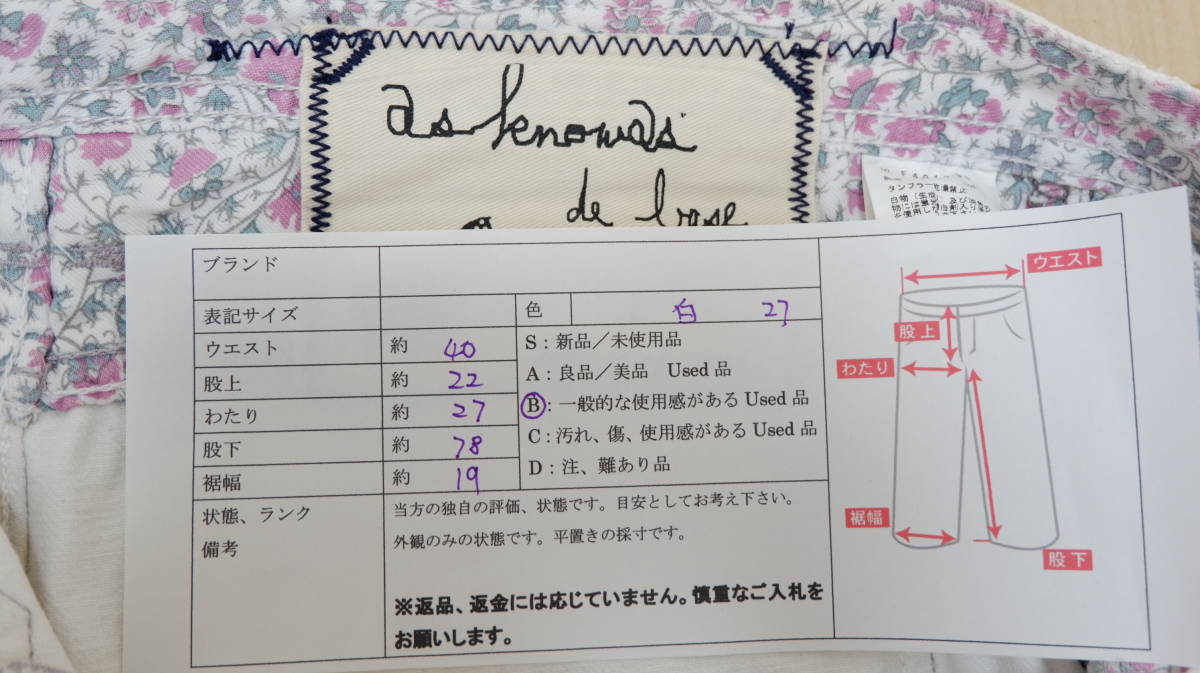 as know as
de base
タンブラー乾燥禁止
ブランド
表記サイズ 色 白 27
ウエスト 約 40
股上 約 22
わたり 約 27
股下 約 78
裾幅 約 19
S：新品／未使用品
A：良品／美品 Used 品
B：一般的な使用感がある Used 品
C：汚れ、傷、使用感がある Used 品
D：注、難あり品
状態、ランク
備考
当方の独自の評価、状態です。目安としてお考え下さい。
外観のみの状態です。平置きの採寸です。
※返品、返金には応じていません。慎重なご入札を
お願いします。
ウエスト
股上
わたり
裾幅
股下